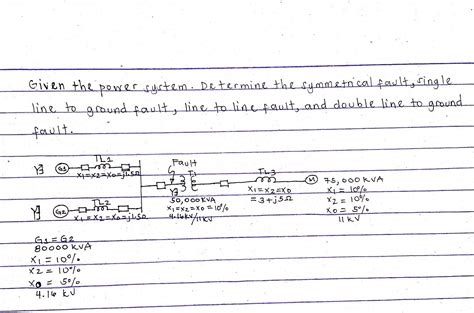 Given the power system. Determine the symmetrical fault, single
line to ground fault, line to line fault, and double line to ground
fault.
TL1
G1
X1=X2=X0=j1.5Ω
TL2
G2
X1=X2=X0=j1.5Ω
Fault
T1
50,000KVA
X1=X2=X0=10%
4.16KV/11KV
TL3
X1=X2=X0
=3+j5Ω
M
75,000 KVA
X1 = 10%
X2 = 10%
X0 = 5%
11 KV
G1 = G2
80000 KVA
X1 = 10%
X2 = 10%
X0 = 5%
4.16 KV